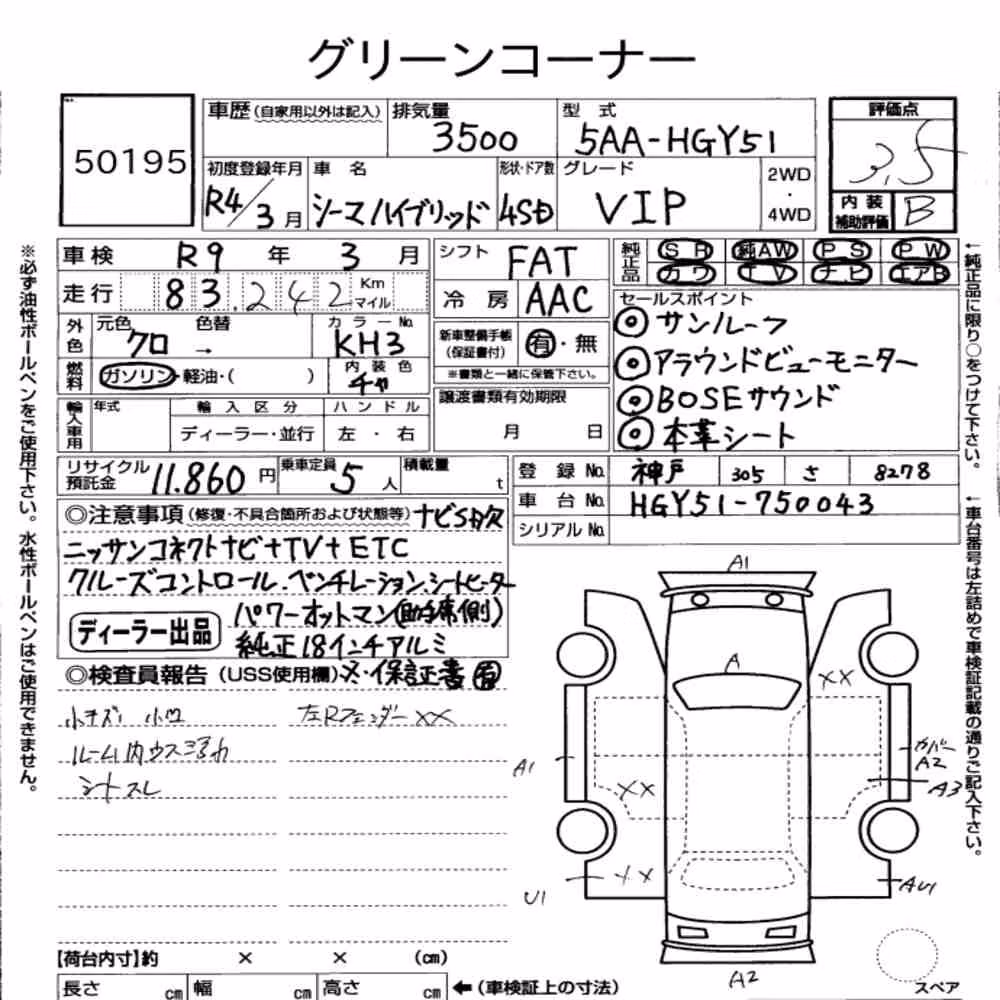 グリーンコーナー
50195
車歴(自家用以外は記入) 排気量 3500 型式 5AA-HGY51
評価点 3.5
初度登録年月 R4/3月 車名 シーマハイブリッド 形状・ドア数 4SD グレード VIP 2WD・4WD
内装補助評価 B
車検 R9年 3月
シフト FAT
純正品 SR 純AW PS PW
カワ TV ナビ エアB
走行 83,242 Km マイル
冷房 AAC
セールスポイント
◎サンルーフ
外色 元色 クロ 色替 → カラーNo. KH3
新車整備手帳(保証書付) 有・無
※書類と一緒に保管下さい。
◎アラウンドビューモニター
燃料 ガソリン・軽油・( ) 内装色 チャ
◎BOSEサウンド
譲渡書類有効期限
月 日
◎本革シート
輸入車用 年式 輸入区分 ハンドル
ディーラー・並行 左・右
リサイクル預託金 11.860円 乗車定員 5人 積載量 t
登録No. 神戸 305 さ 8278
車台No. HGY51-750043
シリアルNo.
◎注意事項(修復・不具合箇所および状態等)ナビS欠
ニッサンコネクトナビ+TV+ETC
クルーズコントロール.ベンチレーション.シートヒーター
パワーオットマン(助手席側)
ディーラー出品
純正18インチアルミ
◎検査員報告(USS使用欄)又・保証書有
小キズ 小凹 左Rフェンダー××
ルーム内ウスヨゴレ
シートスレ
A1
A
××
A1
カバーA2
A3
××
××
U1
AU1
A2
スペア
【荷台内寸】約 × × (cm)
長さ cm 幅 cm 高さ cm ←(車検証上の寸法)
※必ず油性ボールペンをご使用下さい。水性ボールペンはご使用できません。
←純正品に限り○をつけて下さい。
←車台番号は左詰めで車検証記載の通りご記入下さい。